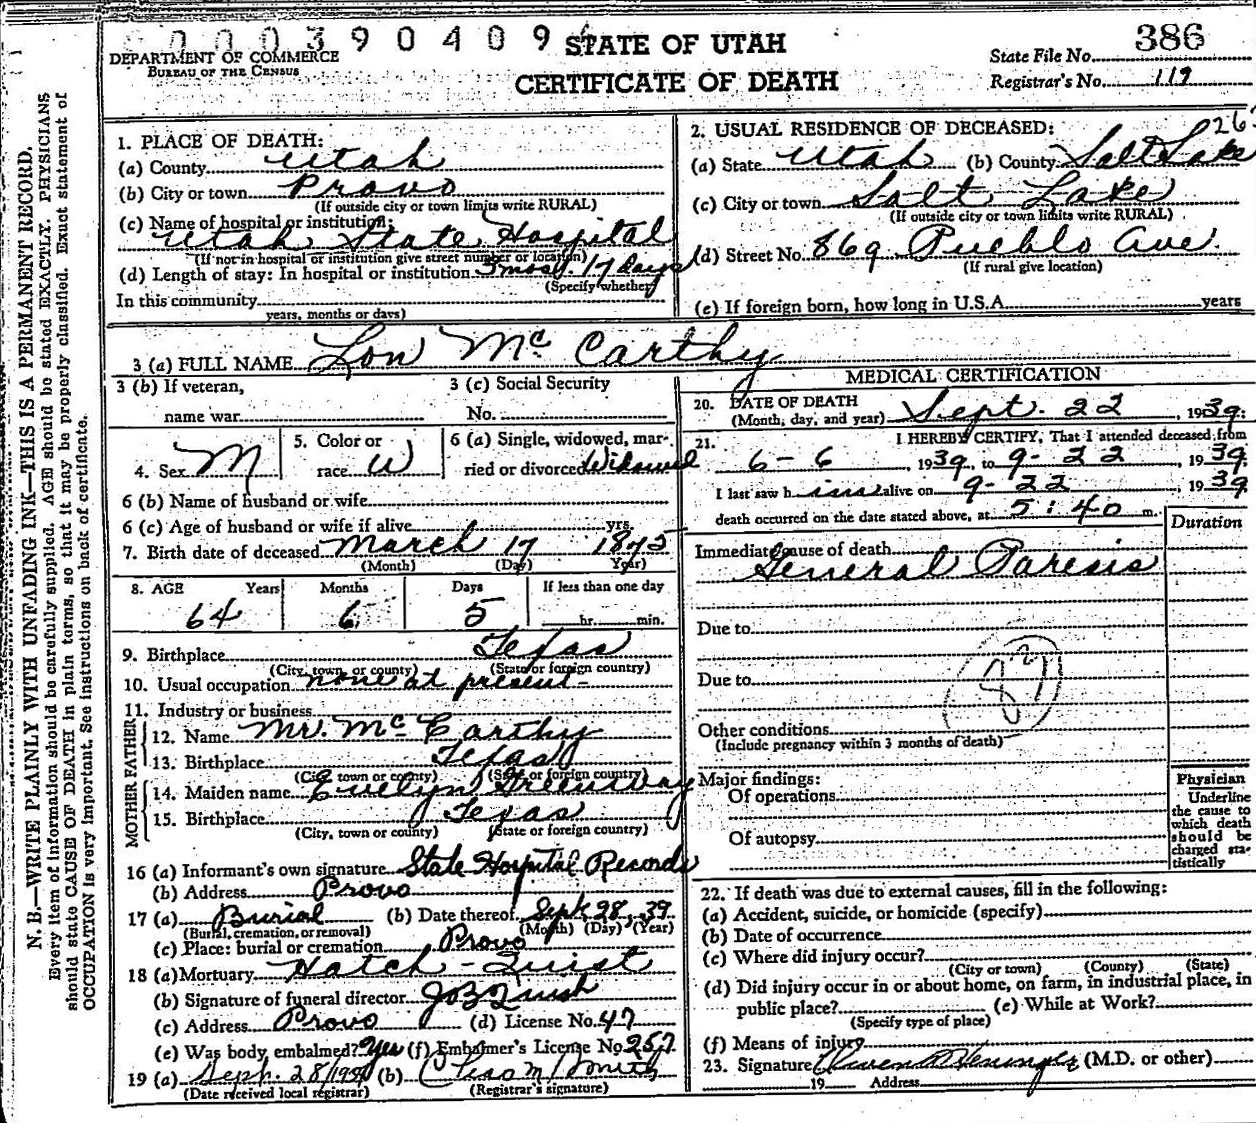 000390409
STATE OF UTAH
CERTIFICATE OF DEATH
DEPARTMENT OF COMMERCE
BUREAU OF THE CENSUS
State File No. 386
Registrar's No. 119
N. B.—WRITE PLAINLY WITH UNFADING INK—THIS IS A PERMANENT RECORD.
Every item of information should be carefully supplied. AGE should be stated EXACTLY. PHYSICIANS
should state CAUSE OF DEATH in plain terms, so that it may be properly classified. Exact statement of
OCCUPATION is very important. See instructions on back of certificate.
1. PLACE OF DEATH:
(a) County Utah
(b) City or town Provo
(If outside city or town limits write RURAL)
(c) Name of hospital or institution:
Utah State Hospital
(If not in hospital or institution give street number or location)
(d) Length of stay: In hospital or institution 3 mos. 17 days
(Specify whether
In this community
years, months or days)
2. USUAL RESIDENCE OF DECEASED: 26
(a) State Utah (b) County Salt Lake
(c) City or town Salt Lake
(If outside city or town limits write RURAL)
(d) Street No. 869 Pueblo Ave.
(If rural give location)
(e) If foreign born, how long in U.S.A. years
3 (a) FULL NAME Lon McCarthy
3 (b) If veteran,
name war
3 (c) Social Security
No.
4. Sex M
5. Color or
race W
6 (a) Single, widowed, mar-
ried or divorced Widowed
6 (b) Name of husband or wife
6 (c) Age of husband or wife if alive yrs.
7. Birth date of deceased March 17 1875
(Month) (Day) Year)
8. AGE Years Months Days If less than one day
64 6 5 hr. min.
9. Birthplace Texas
(City, town, or county) (State or foreign country)
10. Usual occupation none at present
11. Industry or business
FATHER
12. Name Mr. McCarthy
13. Birthplace Texas
(City, town or county) (State or foreign country)
MOTHER
14. Maiden name Evelyn Greenway
15. Birthplace Texas
(City, town or county) (State or foreign country)
16 (a) Informant's own signature State Hospital Records
(b) Address Provo
17 (a) Burial (b) Date thereof Sept 28, 39
(Burial, cremation, or removal) (Month) (Day) (Year)
(c) Place: burial or cremation Provo
18 (a) Mortuary Hatch - Quist
(b) Signature of funeral director
(c) Address Provo (d) License No. 47
(e) Was body embalmed? Yes (f) Embalmer's License No. 257
19 (a) Sept. 28/1939 (b) Chas M Smith
(Date received local registrar) (Registrar's signature)
MEDICAL CERTIFICATION
20. DATE OF DEATH
(Month, day, and year) Sept. 22, 1939
21. I HEREBY CERTIFY, That I attended deceased from
6-6 1939, to 9-22, 1939
I last saw h im alive on 9-22, 1939
death occurred on the date stated above, at 5:40 m.
Duration
Immediate cause of death
General Paresis
Due to
Due to
Other conditions
(Include pregnancy within 3 months of death)
Major findings:
Of operations
Of autopsy
Physician
Underline
the cause to
which death
should be
charged sta-
tistically
22. If death was due to external causes, fill in the following:
(a) Accident, suicide, or homicide (specify)
(b) Date of occurrence
(c) Where did injury occur?
(City or town) (County) (State)
(d) Did injury occur in or about home, on farm, in industrial place, in
public place? (e) While at Work?
(Specify type of place)
(f) Means of injury
23. Signature (M.D. or other)
19 Address